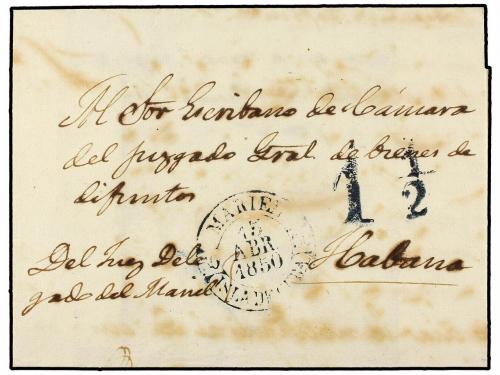 Al Sor Escribano de Cámara
del juzgado Gral. de bienes de
difuntos
1 1/2
MARIEL
15
ABR
1850
ISLA DE CUBA
Del Juez Dele
gado del Mariel
Habana